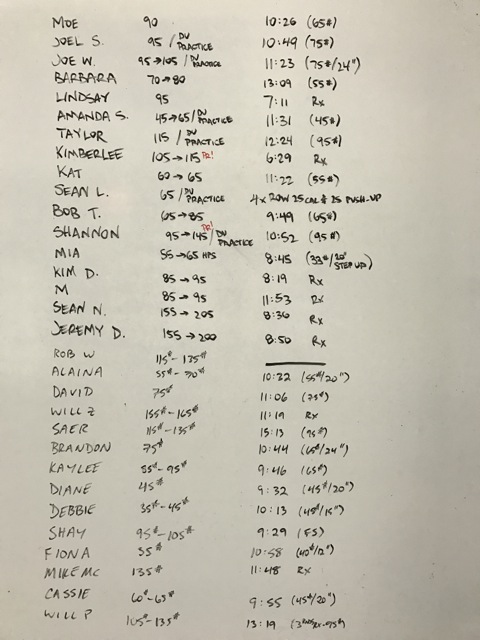 MOE 90 10:26 (65#)
JOEL S. 95 / DU PRACTICE 10:49 (75#)
JOE W. 95→105 / DU PRACTICE 11:23 (75#/24")
BARBARA 70→80 13:09 (55#)
LINDSAY 95 7:11 Rx
AMANDA S. 45→65 / DU PRACTICE 11:31 (45#)
TAYLOR 115 / DU PRACTICE 12:24 (95#)
KIMBERLEE 105→115 PR! 6:29 Rx
KAT 60→65 11:22 (55#)
SEAN L. 65 / DU PRACTICE 4x ROW 25 CAL & 25 PUSH-UP
BOB T. 65→85 9:49 (65#)
SHANNON 95→145 PR! / DU PRACTICE 10:52 (95#)
MIA 55→65 HPS 8:45 (33#/20" STEP UP)
KIM D. 85→95 8:19 Rx
M 85→95 11:53 Rx
SEAN N. 155→205 8:36 Rx
JEREMY D. 155→200 8:50 Rx
ROB W 115#-135#
ALAINA 55#-70# 10:32 (55#/20")
DAVID 75# 11:06 (75#)
WILL Z 155#-165# 11:19 Rx
SAER 115#-135# 15:13 (95#)
BRANDON 75# 10:44 (65#/24")
KAYLEE 85#-95# 9:46 (65#)
DIANE 45# 9:32 (45#/20")
DEBBIE 35#-45# 10:13 (45#/15")
SHAY 95#-105# 9:29 (FS)
FIONA 55# 10:58 (40#/12")
MIKE MC 135# 11:48 Rx
CASSIE 60#-65# 9:55 (45#/20")
WILL P 105#-135# 13:19